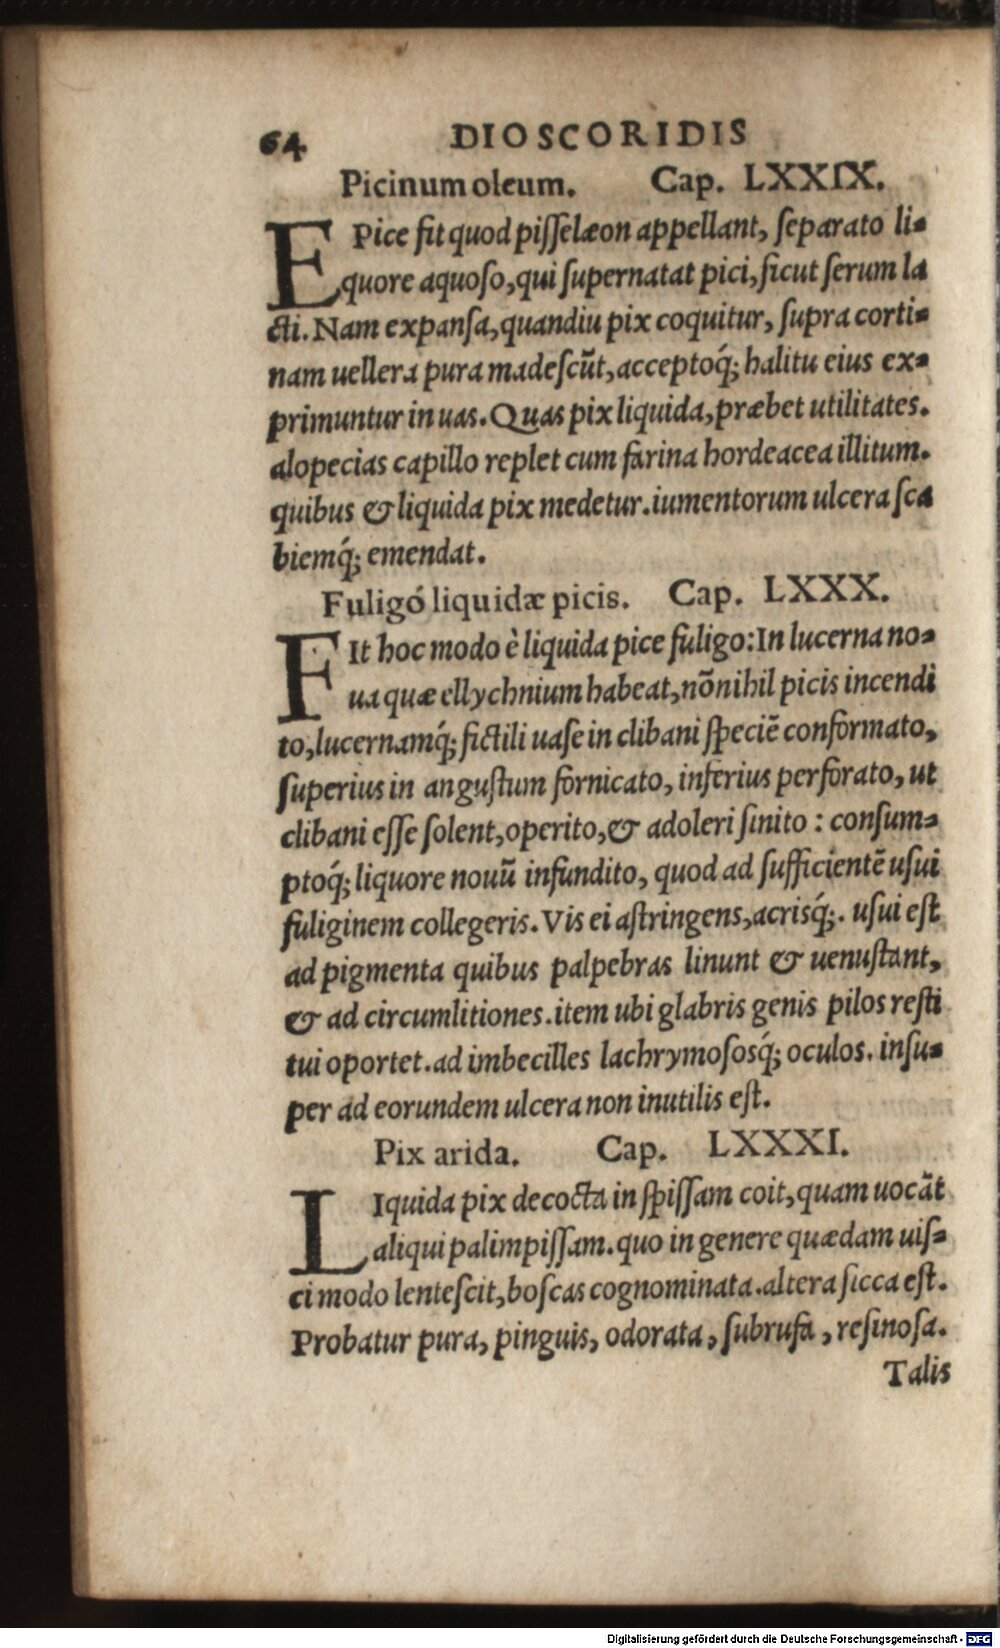 64 DIOSCORIDIS
Picinum oleum. Cap. LXXIX.
E Pice fit quod pisselæon appellant, separato li-
quore aquoso, qui supernatat pici, sicut serum la
cti. Nam expansa, quandiu pix coquitur, supra corti-
nam uellera pura madescūt, acceptoq́; halitu eius ex-
primuntur in uas. Quas pix liquida, præbet utilitates.
alopecias capillo replet cum farina hordeacea illitum.
quibus & liquida pix medetur. iumentorum ulcera sca
biemq́; emendat.
Fuligó liquidæ picis. Cap. LXXX.
FIt hoc modo è liquida pice fuligo: In lucerna no-
ua quæ ellychnium habeat, nõnihil picis incendi
to, lucernamq́; fictili uase in clibani speciē conformato,
superius in angustum fornicato, inferius perforato, ut
clibani esse solent, operito, & adoleri sinito : consum-
ptoq́; liquore nouū infundito, quod ad sufficientē usui
fuliginem collegeris. Vis ei astringens, acrisq́;. usui est
ad pigmenta quibus palpebras linunt & uenustant,
& ad circumlitiones. item ubi glabris genis pilos resti
tui oportet. ad imbecilles lachrymososq́; oculos. insu-
per ad eorundem ulcera non inutilis est.
Pix arida. Cap. LXXXI.
LIquida pix decocta in spissam coit, quam uocāt
aliqui palimpissam. quo in genere quædam uis-
ci modo lentescit, boscas cognominata. altera sicca est.
Probatur pura, pinguis, odorata, subrufa, resinosa.
Talis
Digitalisierung gefördert durch die Deutsche Forschungsgemeinschaft - DFG